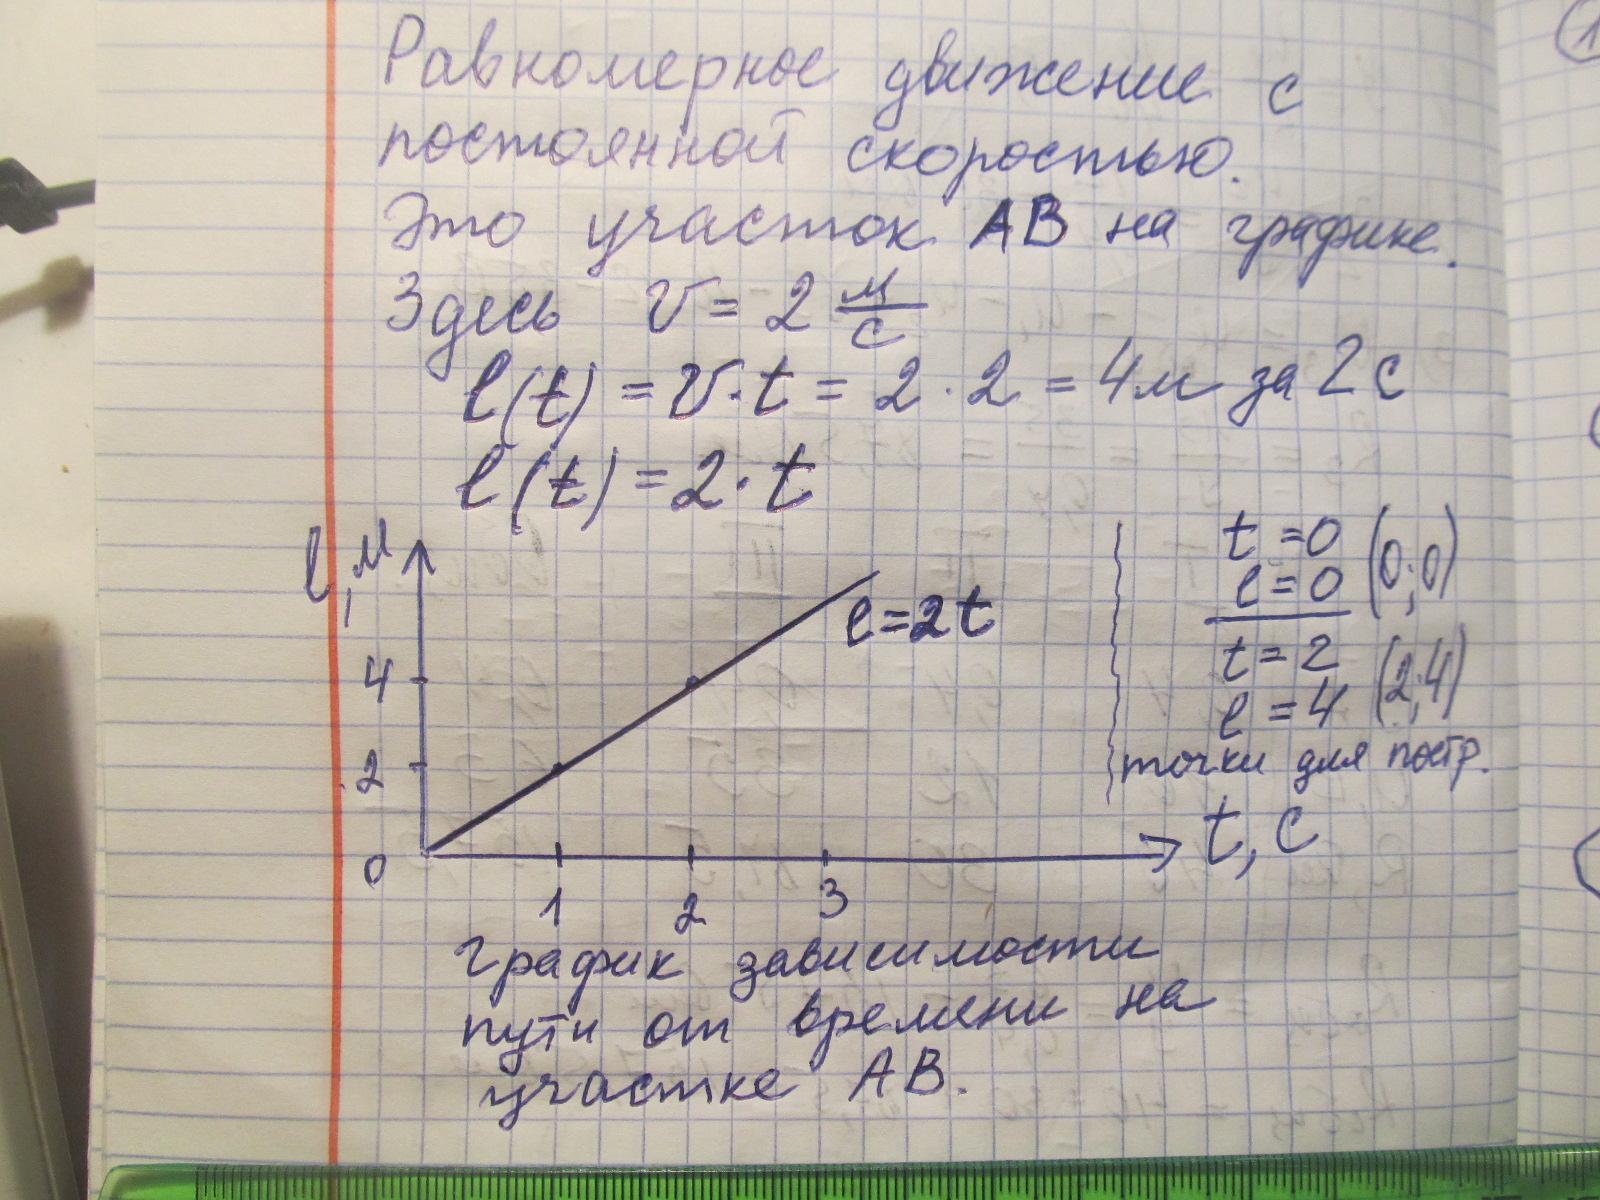 Равномерное движение с
постоянной скоростью.
Это участок AB на графике.
Здесь v = 2 м/с
l(t) = v·t = 2·2 = 4м за 2с
l(t) = 2·t
l, м
l=2t
4
2
0
1 2 3
t, с
t=0
l=0 (0;0)
t=2
l=4 (2;4)
точки для постр.
График зависимости
пути от времени на
участке AB.
1